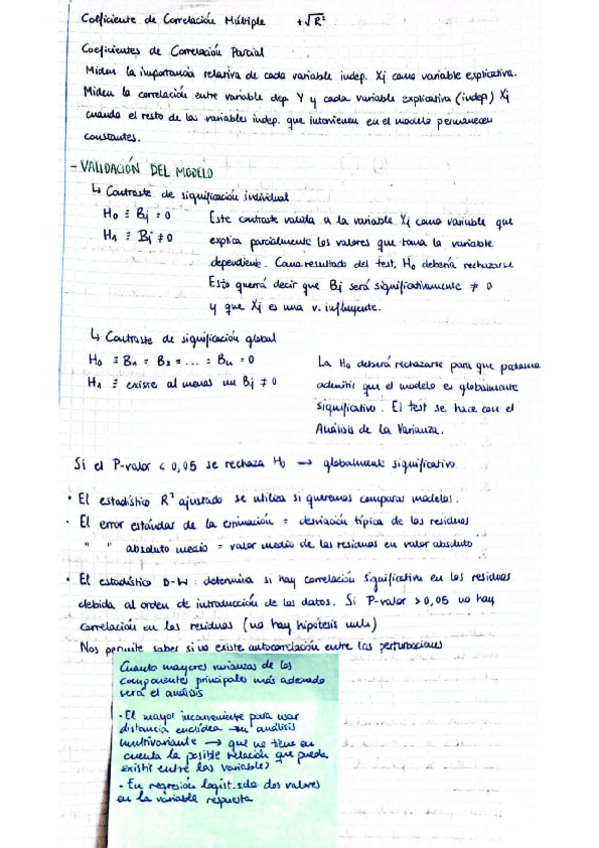 Coeficiente de Correlación Múltiple +√R²
Coeficientes de Correlación Parcial
Miden la importancia relativa de cada variable indep. Xj como variable explicativa.
Miden la correlación entre variable dep Y y cada variable explicativa (indep) Xj
cuando el resto de las variables indep. que intervienen en el modelo permanecen
constantes.
- VALIDACIÓN DEL MODELO
↳ Contraste de significación individual
H₀ ≡ Bj = 0 Este contraste valida a la variable Xj como variable que
H₁ ≡ Bj ≠ 0 explica parcialmente los valores que toma la variable
dependiente. Como resultado del test, H₀ debería rechazarse
Esto querrá decir que Bj será significativamente ≠ 0
y que Xj es una v. influyente.
↳ Contraste de significación global
H₀ ≡ B₁ = B₂ = ... = Bk = 0 La H₀ deberá rechazarse para que podamos
H₁ ≡ existe al menos un Bj ≠ 0 admitir que el modelo es globalmente
significativo. El test se hace con el
Análisis de la Varianza.
Si el P-valor < 0,05 se rechaza H₀ → globalmente significativo
• El estadístico R² ajustado se utiliza si queremos comparar modelos.
• El error estándar de la estimación = desviación típica de los residuos
" " absoluto medio = valor medio de los residuos en valor absoluto
• El estadístico D-W : determina si hay correlación significativa en los residuos
debida al orden de introducción de los datos. Si P-valor > 0,05 no hay
correlación en los residuos (no hay hipótesis nula)
Nos permite saber si no existe autocorrelación entre las perturbaciones
Cuanto mayores varianzas de los
componentes principales más adecuado
será el análisis
• El mayor inconveniente para usar
distancia euclídea → en análisis
multivariante → que no tiene en
cuenta la posible relación que pueda
existir entre las variables
• En regresión logíst. solo dos valores
en la variable respuesta